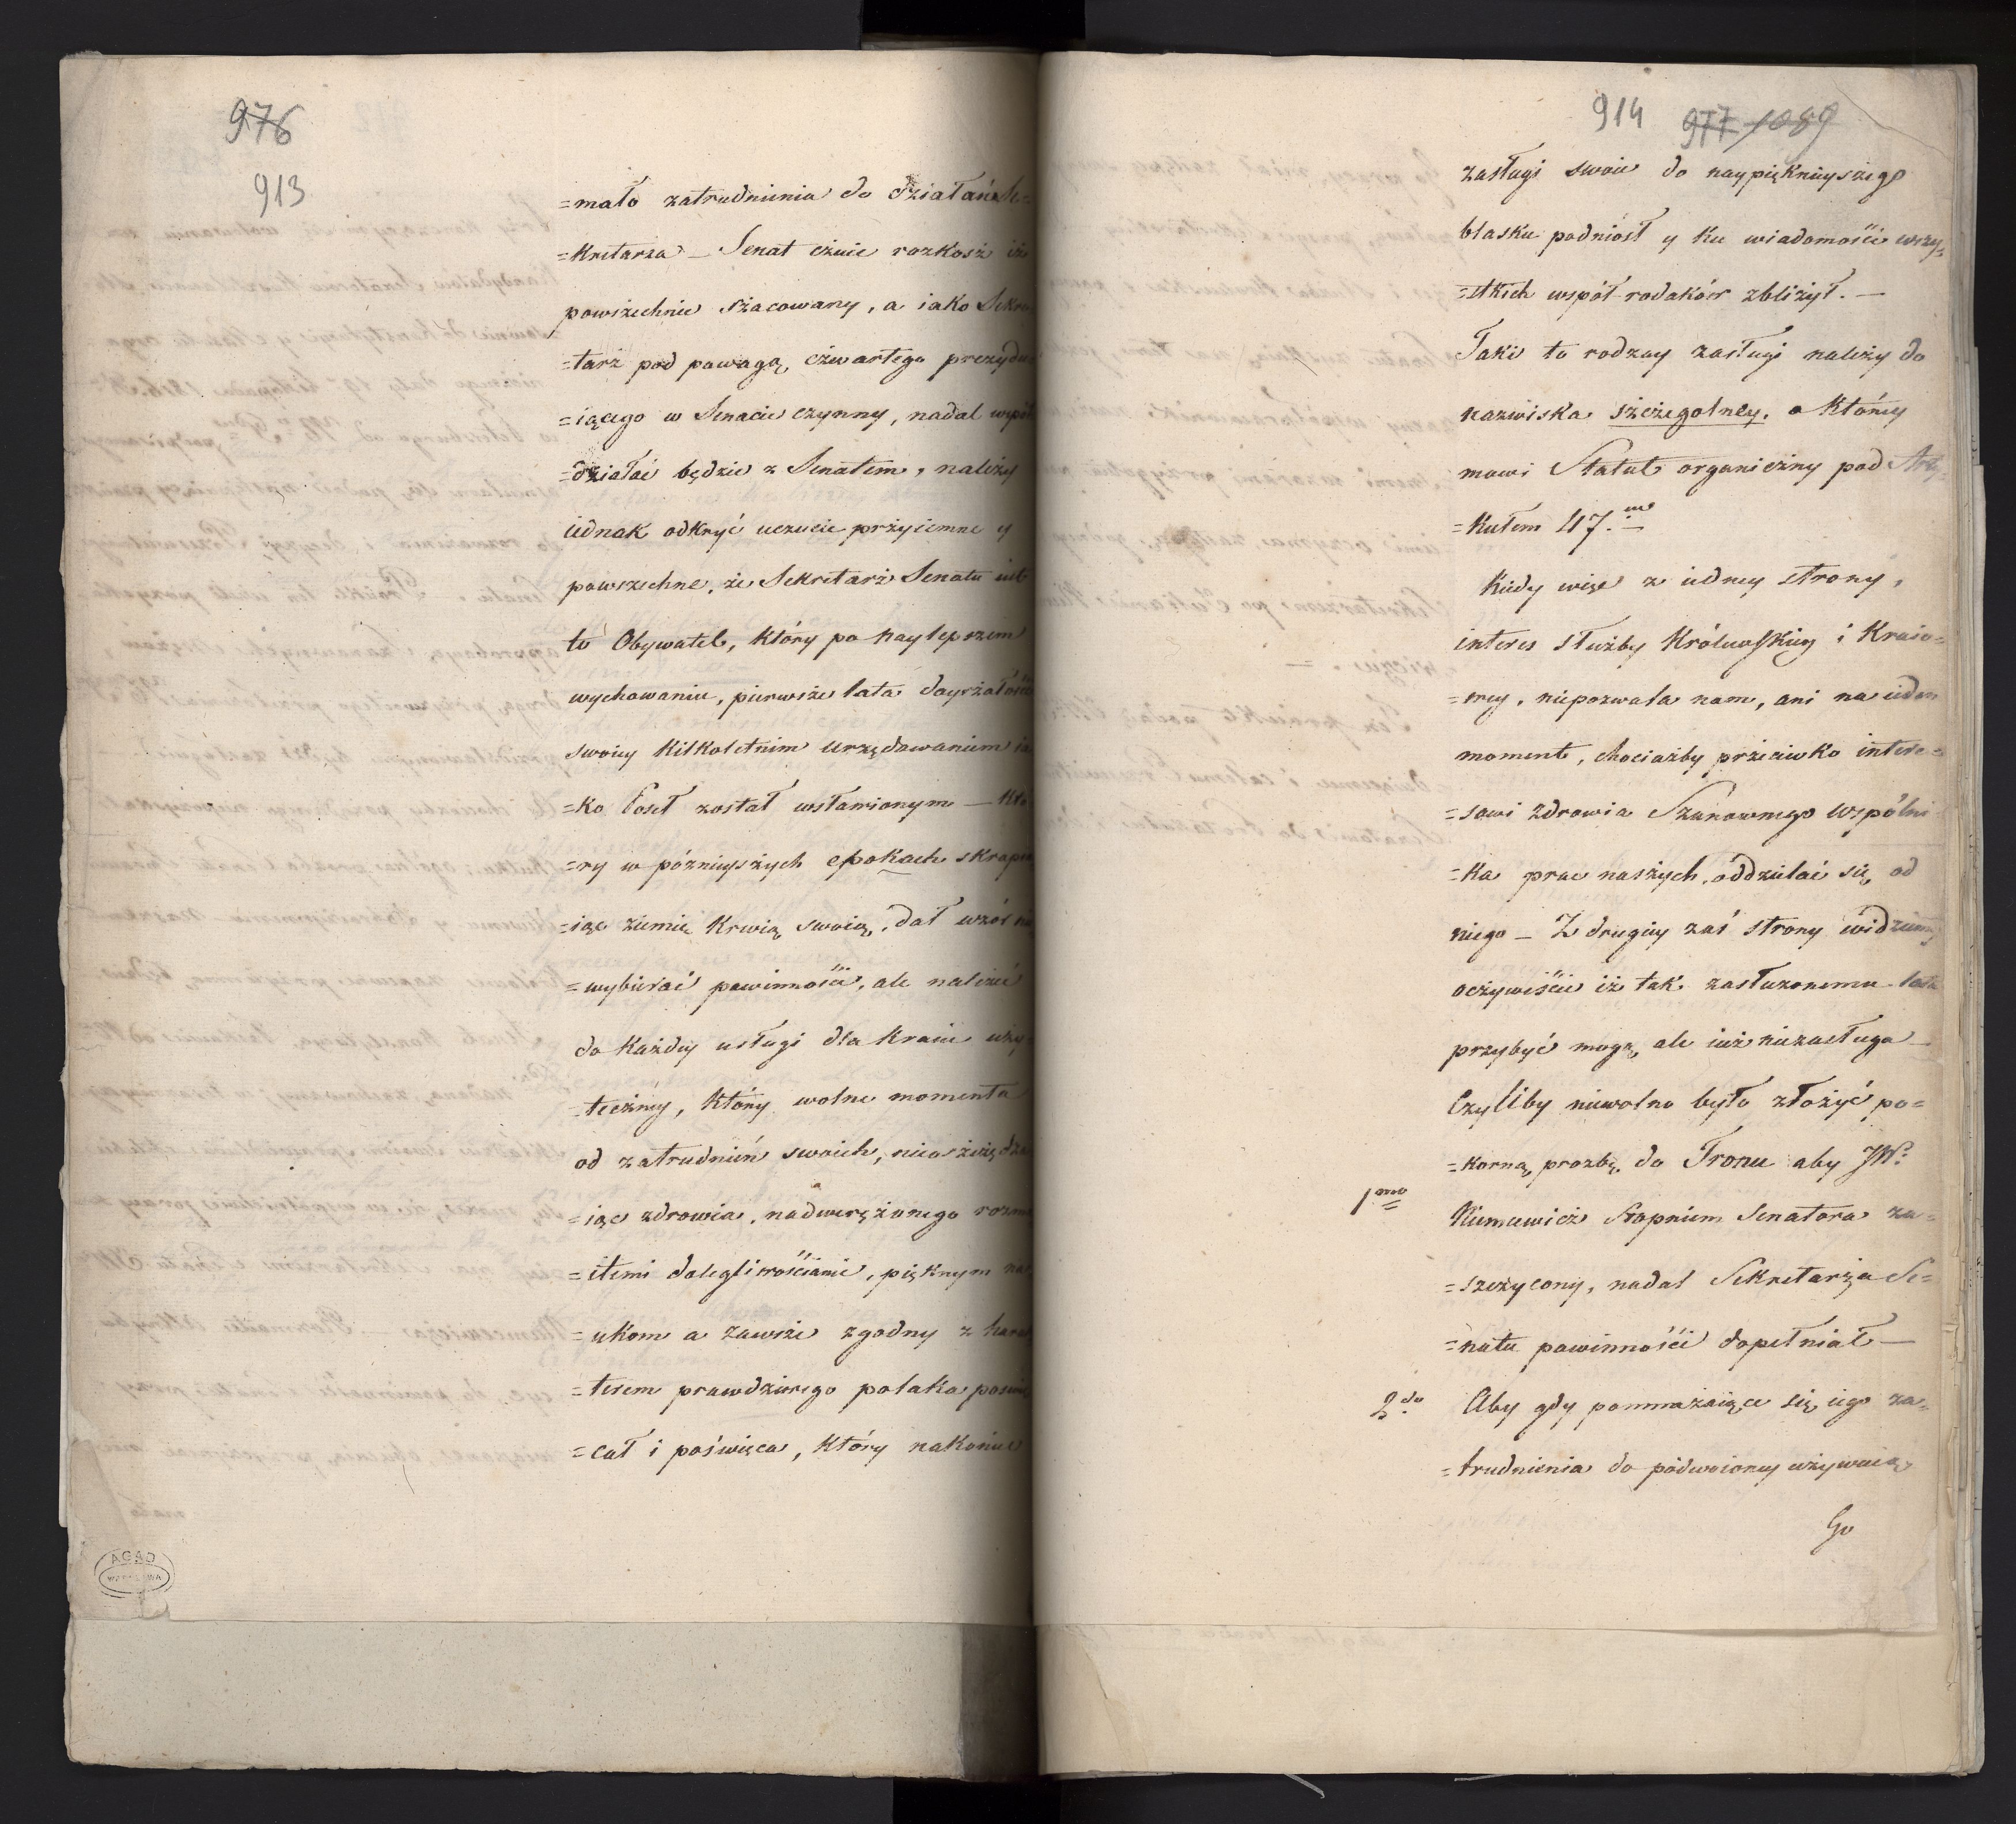 976
913
=mało zatrudnienia do działań Se=
=kretarza – Senat czuie rozkosz iż
powszechnie szacowany, a iako Sekre
=tarz pod powagą czwartego prezydu
=iącego w Senacie czynny, nadal wspól
=działać będzie z Senatem, należy
iednak odkryć uczucie przyiemne y
powszechne, że Sekretarz Senatu iest
to Obywatel, który po naylepszem
wychowaniu, pierwsze lata doyrzałości
swoiey kilkoletnim urzędowaniem ia
=ko Poseł został wsławionym – któ
=ry w poźnieyszych epokach skrapia
=iąc ziemię krwią swoią, dał wzór nie
=wybierać powinności, ale należeć
do każdey usługi dla kraiu uży
=teczney, który wolne momenta
od zatrudnień swoich, nieoszczędza
=iąc zdrowia, nadwerężonego rozma
=itemi dolegliwościami, pięknym na
=ukom a zawsze zgodny z harak
=terem prawdziwego polaka poswię
=cał i poświęca, który nakoniec
AGAD
WARSZAWA
914 977 1089
zasługi swoie do naypięknieyszego
blasku podniósł y ku wiadomości wszy=
=stkich współ-rodaków zbliżył. —
Taki to rodzay zasługi należy do
nazwiska szczegolney, o którey
mowi Statut organiczny pod Arty=
=kułem 47.me
Kiedy więc z iedney strony,
interes służby Królewskiey i Kraio=
=wey, niepozwala nam, ani na ieden
moment, chociażby przeciwko intere=
=sowi zdrowia Szanownego wspólni
=ka prac naszych, oddzielać się od
niego – Z drugiey zaś strony widziemy
oczywiście iż tak zasłużonemu lata
przybyć mogą, ale iuż niezasługa
Czyliby niewolno było złożyć po=
=korną prozbę do Tronu aby JW:
1mo
Niemcewicz Stopniem Senatora za=
=szczycony, nadal Sekretarza Se=
=natu powinności dopełniał —
2do
Aby gdy pomnażaiące się iego za=
=trudnienia do podwoioney używaią
Go